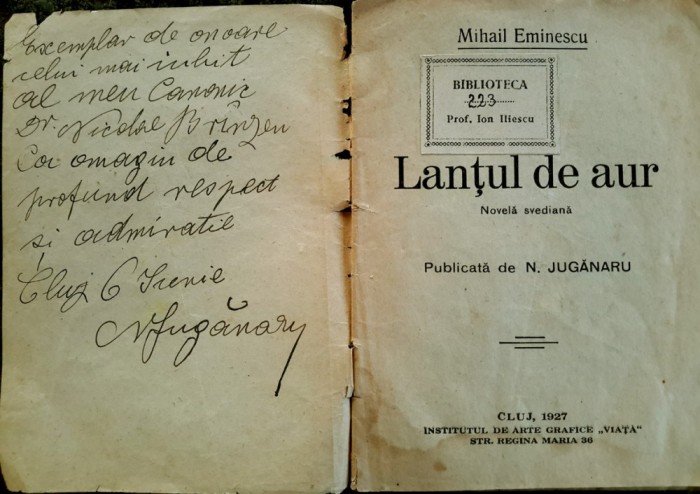 Exemplar de onoare
celui mai iubit
al meu Canonic
Dr. Nicolae Brînzeu
Ca omagiu de
profund respect
și admiratie
Cluj 6 Iunie
NJugănaru
Mihail Eminescu
BIBLIOTECA
223
Prof. Ion Iliescu
Lanțul de aur
Novelă svediană
Publicată de N. JUGĂNARU
CLUJ, 1927
INSTITUTUL DE ARTE GRAFICE „VIAȚA”
STR. REGINA MARIA 36